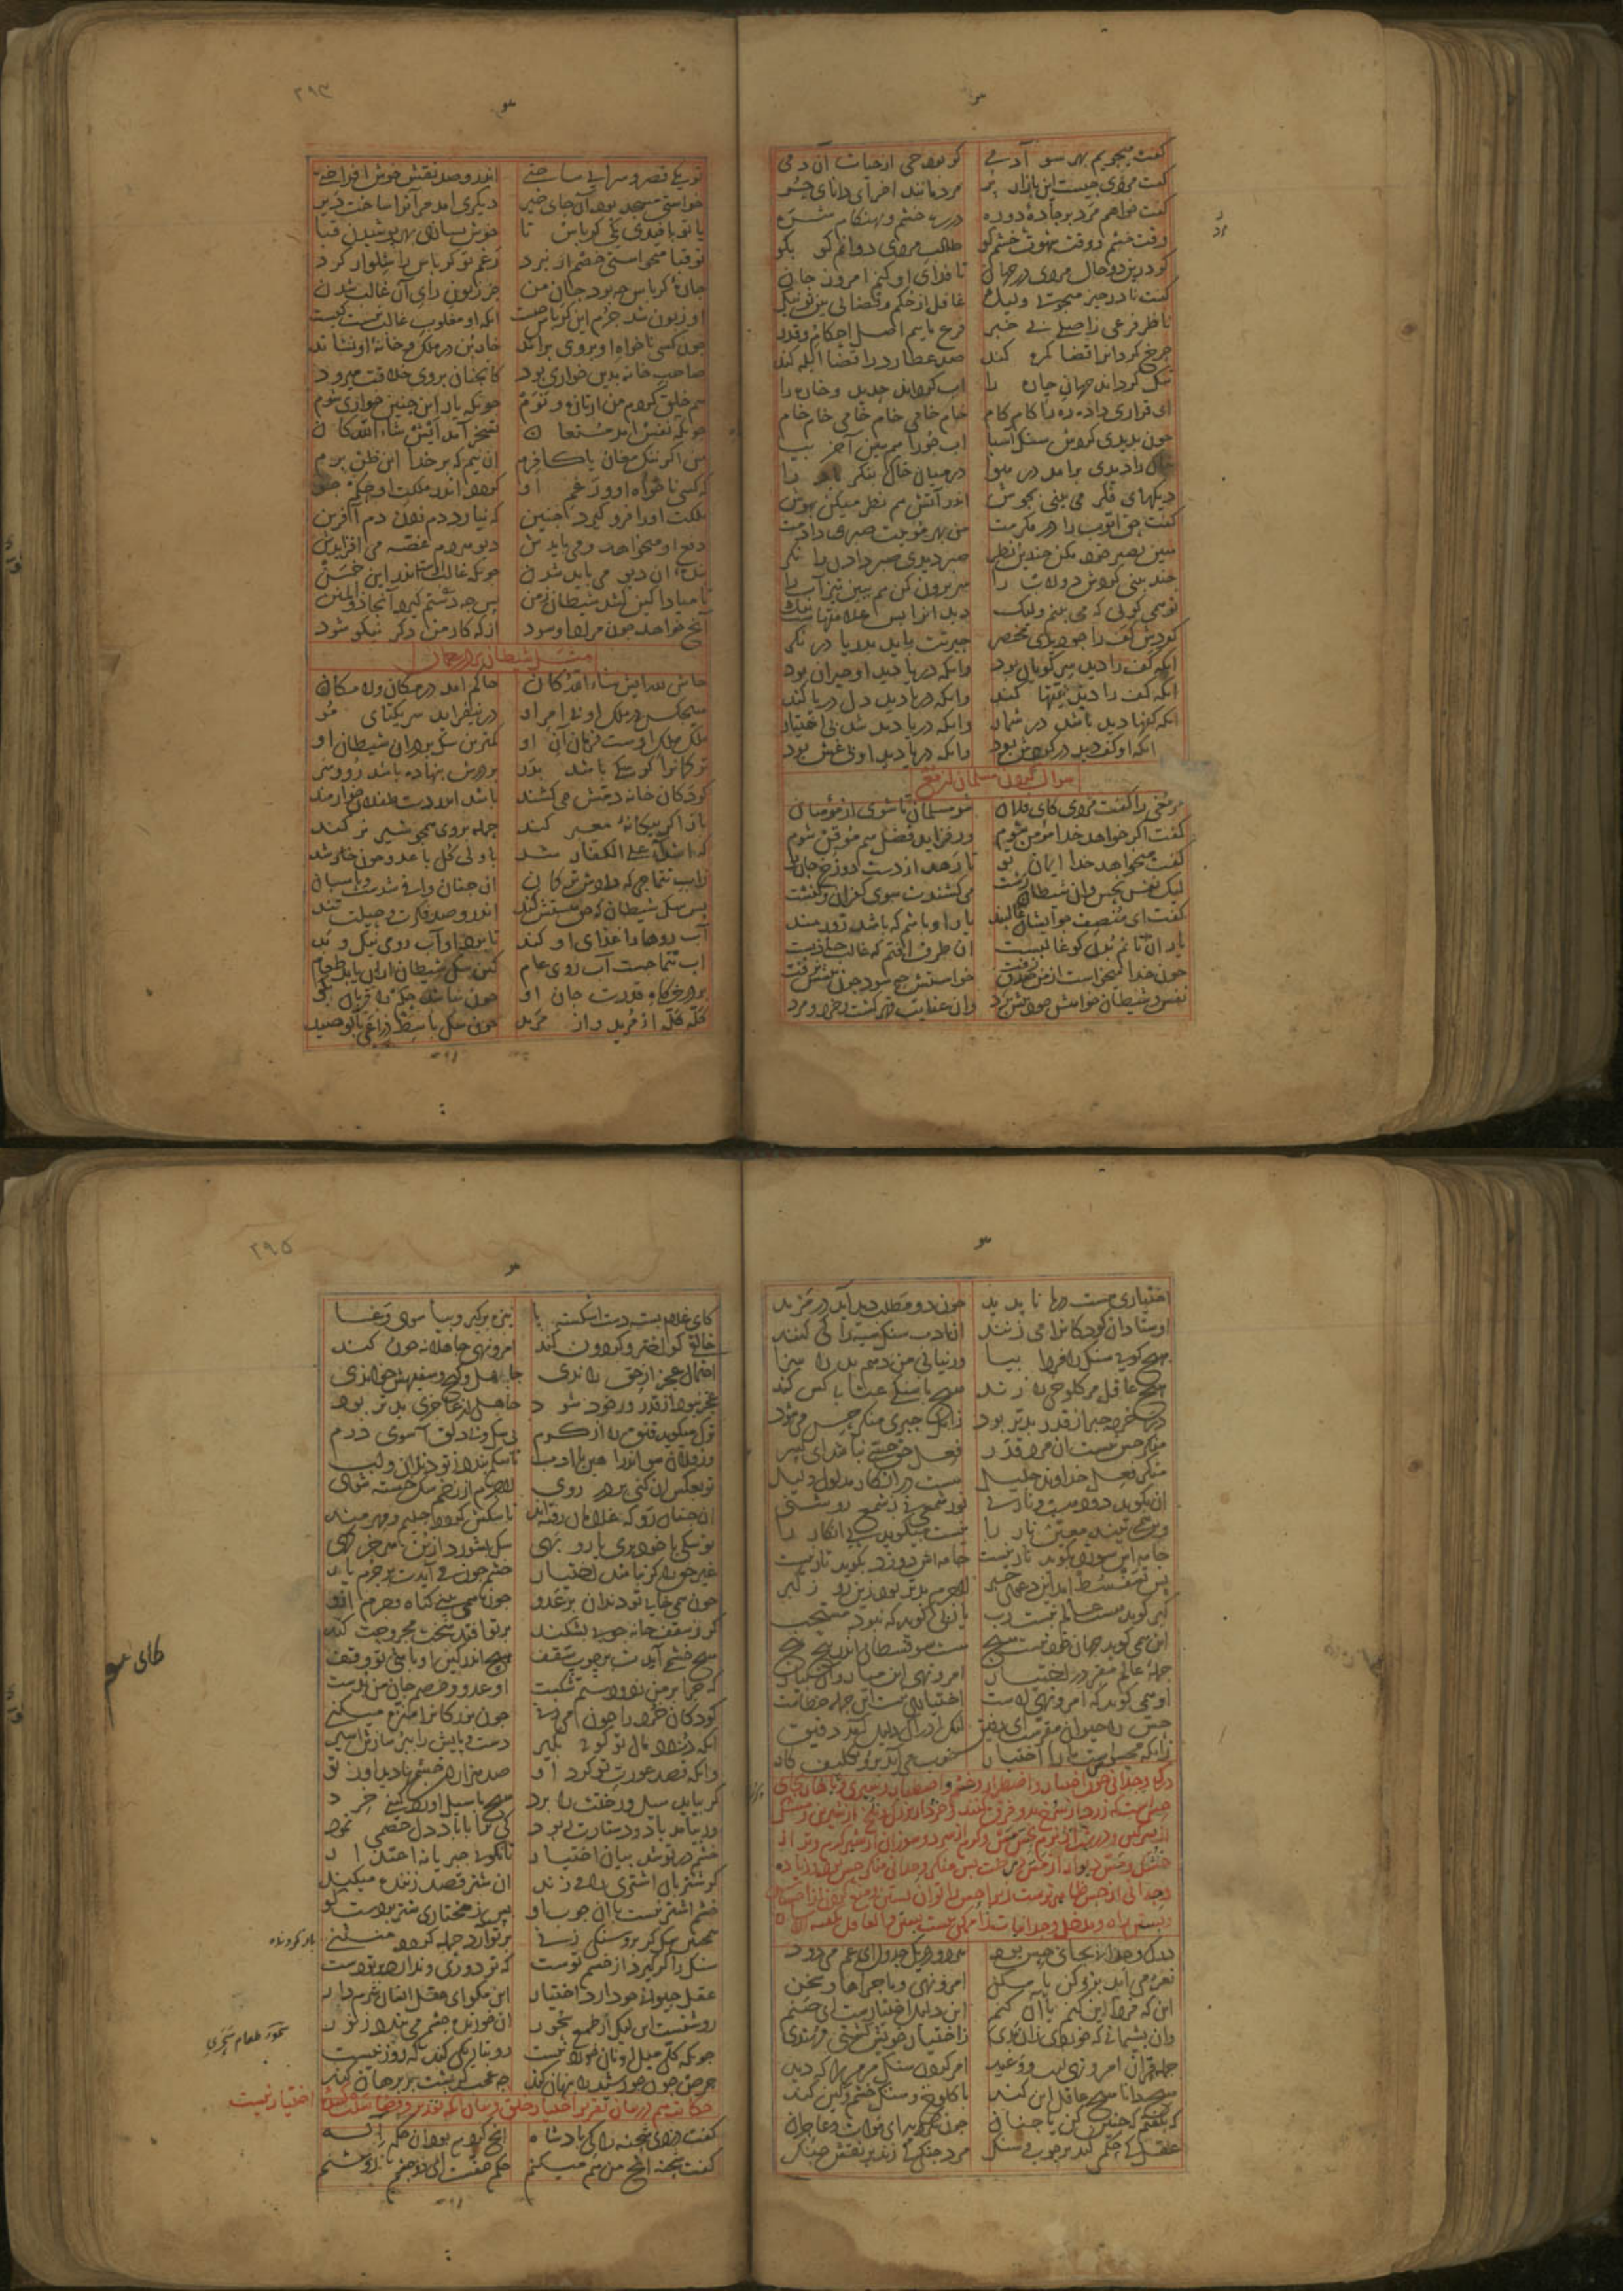 گفت میجویم بهر سو آدمی کو بود حی از حیات آن دمی
گفت مردی هست این بازار پر مردمانند آخر ای دانای حر
گفت خواهم مرد بر جاده دو ره در ره خشم و بهنگام شره
وقت خشم و وقت شهوت مرد کو طالب مردی دوانم کو بکو
کو درین دو حال مردی در جهان تا فدای او کنم امروز جان
گفت نادر چیز میجویی ولیک غافل از حکم و قضایی بین تو نیک
ناظر فرعی ز اصلی بی خبر فرع ماییم اصل احکام و قدر
چرخ گردان را قضا گمره کند صد عطارد را قضا ابله کند
تنگ گرداند جهان چاره را آب گرداند حدید و خاره را
ای قراری داده ره را گام گام خام خامی خام خامی خام خام
چون بدیدی گردش سنگ آسیا آب جو را هم ببین آخر بیا
خاک را دیدی بر آمد در هوا در میان خاک بنگر باد را
دیگهای فکر می بینی بجوش اندر آتش هم نظر میکن بهوش
گفت حق ایوب را در مکرمت من بهر موییت صبری دادمت
هین بصبر خود مکن چندین نظر صبر دیدی صبر دادن را نگر
چند بینی گردش دولاب را سر برون کن هم ببین تیز آب را
تو همی گویی که می بینم ولیک دید آنرا بس علامتهاست نیک
گردش کف را چو دیدی مختصر حیرتت باید بدریا در نگر
آنکه کف را دید سر گویان بود وانکه دریا دید او حیران بود
آنکه کف را دید نیتها کند وانکه دریا دید دل دریا کند
آنکه کفها دید باشد در شمار وانکه دریا دید شد بی اختیار
آنکه او کف دید در گردش بود وانکه دریا دید او بی غش بود
سوال کردن مسلمان از مغ
مر مغی را گفت مردی کای فلان هین مسلمان شو بباش از مؤمنان
گفت اگر خواهد خدا مؤمن شوم ور فزاید فضل هم موقن شوم
گفت میخواهد خدا ایمان تو تا رهد از دست دوزخ جان تو
لیک نفس نحس و آن شیطان زشت می کشندت سوی کفران و کنشت
گفت ای منصف چو ایشان غالبند یار او باشم که باشد زورمند
یار آن تانم بدن کو غالبست آن طرف افتم که غالب جاذبست
چون خدا میخواست از من صدق زفت خواست او چه سود چون پیشش نرفت
نفس و شیطان خواهش خود پیش برد وان عنایت قهر گشت و خرد و مرد
۲۹۴
تو یکی قصر و سرایی ساختی اندرو صد نقش خوش افراختی
خواستی مسجد بود آن جای خیر دیگری آمد مر آنرا ساخت دیر
یا تو بافیدی یکی کرباس تا خوش بسازی بهر پوشیدن قبا
تو قبا میخواستی خصم از نبرد رغم تو کرباس را شلوار کرد
چاره کرباس چه بود جان من جز زبون رای آن غالب شدن
او زبون شد جرم این کرباس چیست آنکه او مغلوب غالب نیست کیست
چون کسی ناخواه او بروی براند خاربن در ملک و خانه او نشاند
صاحب خانه بدین خواری بود کاینچنین بروی خلاقت میرود
هم خلق گردم من ار تازه و نوم چونکه یار این چنین خواری شوم
چونکه نفس آمد مستعان تسخر آمد ایش شاء الله کان
من اگر ننگ مغان یا کافرم آن نیم که بر خدا این ظن برم
که کسی ناخواه او و رغم او گردد اندر ملکت او حکم جو
ملکت او را فرو گیرد چنین که نیارد دم زدن دم آفرین
دفع او میخواهد و می بایدش دیو هر دم غصه می افزایدش
بنده آن دیو می باید شدن چونکه غالب اوست در این انجمن
تا مبادا کین کشد شیطان ز من پس چه دستم گیرد آنجا ذوالمنن
آنچ خواهد چون مراد او شود از که کار من دگر نیکو شود
مثل شیطان بر در رحمان
حاش لله ایش شاء الله کان حاکم آمد در مکان و لامکان
هیچکس در ملک او بی امر او در نیفزاید سر یکتای مو
ملک ملک اوست فرمان آن او کمترین سگ بر در آن شیطان او
ترکمان را گر سگی باشد بدر بر درش بنهاده باشد رو و سر
کودکان خانه دمش می کشند باشد اندر دست طفلان خوارمند
باز اگر بیگانه معبر کند حمله بروی همچو شیر نر کند
که اشداء علی الکفار شد با ولی گل با عدو چون خار شد
ز آب تتماجی که دادش ترکمان آن چنان وافی شدست و پاسبان
پس سگ شیطان که حق هستش کند اندرو صد فکرت و حیلت تند
آب روها را غذای او کند تا برد او آب روی نیک و بد
آب تتماجست آب روی عام که سگ شیطان از آن یابد طعام
بر در خرگاه قدرت جان او چون نباشد حکم را قربان بگو
گله گله از مرید و از مرید چون سگ باسط ذراعی بالوصید
اختیاری هست در ما ناپدید چون دو مطلب دید آید در مزید
اوستادان کودکان را می زنند آن ادب سنگ سیه را کی کنند
هیچ گویی سنگ را فردا بیا ور نیایی من دهم بد را سزا
هیچ عاقل مر کلوخی را زند هیچ با سنگی عتابی کس کند
در خرد جبر از قدر رسواتر بود زانکه جبری منکر حس خود
منکر حس نیست آن مرد قدر فعل حق حسی نباشد ای پسر
منکر فعل خداوند جلیل هست در انکار مدلول دلیل
آن بگوید دود هست و نار نی نور شمعی بی ز شمع روشنی
وین همی بیند معین نار را نیست میگوید پی انکار را
جامه اش سوزد بگوید نار نیست جامه اش دوزد بگوید تار نیست
پس تسفسط آمد این دعوی جبر لاجرم بدتر بود زین رو ز گبر
گبر گوید هست عالم نیست رب یا ربی گوید که نبود مستحب
این همی گوید جهان خود نیست هیچ هست سوفسطایی اندر پیچ پیچ
جمله عالم مقر در اختیار امر و نهی این میار و آن بیار
او همی گوید که امر و نهی لاست اختیاری نیست این جمله خطاست
حس را حیوان مقرست ای رفیق لیک ادراک دلیل آمد دقیق
زانکه محسوس است ما را اختیار خوب می آید برو تکلیف کار
درک وجدانی چون اختیار و اضطرار و خشم و اصطبار و سیری و ناهار بجای
حس است که زرد از سرخ بداند و فرق کند و خرد از بزرگ و تلخ از شیرین و مشک
از سرگین و درشت از نرم و گرم از سرد و سوزان از شیر گرم و تر از
خشک و مس دیوار از مس درخت پس منکر وجدانی منکر حس باشد و زیاده
درک وجدانی بجای حس بود هر دو در یک جدول ای عم می رود
نغز می آید برو کن یا مکن امر و نهی و ماجراها و سخن
این که فردا این کنم یا آن کنم این دلیل اختیارست ای صنم
وان پشیمانی که خوردی زان بدی ز اختیار خویش گشتی مهتدی
جمله قرآن امر و نهیست و وعید امر کردن سنگ مرمر را که دید
هیچ دانا هیچ عاقل این کند با کلوخ و سنگ خشم و کین کند
که بگفتم که چنین کن یا چنان چون نکردید ای موات و عاجزان
عقل کی حکمی کند بر چوب و سنگ مرد چنگی کی زند بر نقش چنگ
۲۹۵
کای غلام بسته دست اشکسته پا نیزه برگیر و بیا سوی وغا
خالقی کو اختر و گردون کند امر و نهی جاهلانه چون کند
احتمال عجز از حق راندی جاهل و گیج و سفیهش خواندی
عجز نبود از قدر ور خود شود جاهلی از عاجزی بدتر بود
ترک میگوید قنق را از کرم بی سگ و بی دلق آ سوی درم
وز فلان سو اندر آ هین با ادب تا سگم بندد ز تو دندان و لب
تو بعکس آن کنی بر در روی لاجرم از زخم سگ خسته شوی
آن چنان رو که غلامان رفته اند تا سگش گردد حلیم و مهرمند
تو سگی با خود بری یا روبهی سگ بشورد از بن هر خرگهی
غیر حق را گر نباشد اختیار خشم چون می آیدت بر جرم یار
چون همی خایی تو دندان بر عدو چون همی بینی گناه و جرم ازو
گر ز سقف خانه چوبی بشکند بر تو افتد سخت مجروحت کند
هیچ خشمی آیدت بر چوب سقف هیچ اندر کین او باشی تو وقف
که چرا بر من زد و دستم شکست او عدو و خصم جان من بدست
کودکان خرد را چون میزنی چون بزرگان را منزه میکنی
آنکه دزدد مال تو گویی بگیر دست و پایش را ببر سازش اسیر
وانکه قصد عورت تو کرد او صد هزاران خشم از تو
گر بیاید سیل و رخت تو برد هیچ با سیل آورد کینی خرد
ور بیامد باد و دستارت ربود کی ترا با باد دل خشمی نمود
خشم در تو شد بیان اختیار تا نگویی جبریانه اعتذار
گر شتربان اشتری را می زند آن شتر قصد زننده میکند
خشم اشتر نیست با آن چوب او پس ز مختاری شتر بردست بو
همچنین سگ گر برو سنگی زنی بر تو آرد حمله گردد منثنی
سنگ را گر گیرد از خشم توست که تو دوری و ندارد بر تو دست
عقل حیوانی چو دارد اختیار این مگو ای عقل انسان شرم دار
روشنست این لیکن از طمع سحور آن خورنده چشم می بندد ز نور
چونکه کلی میل او نان خوردنیست رو بتاریکی کند که روز نیست
حرص چون خورشید را پنهان کند چه عجب گر پشت بر برهان کند
حکایت هم در بیان تقریر اختیار خلق و بیان آنکه تقدیر و قضا سلب کننده اختیار نیست
گفت دزدی شحنه را کای پادشاه آنچ کردم بود آن حکم اله
گفت شحنه آنچ من هم میکنم حکم حقست ای دو چشم روشنم
باز گردنده
سحور طعام سحری